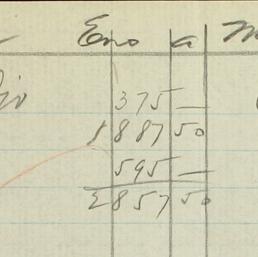 Eno a
375 —
1887 50
595 —
2857 50